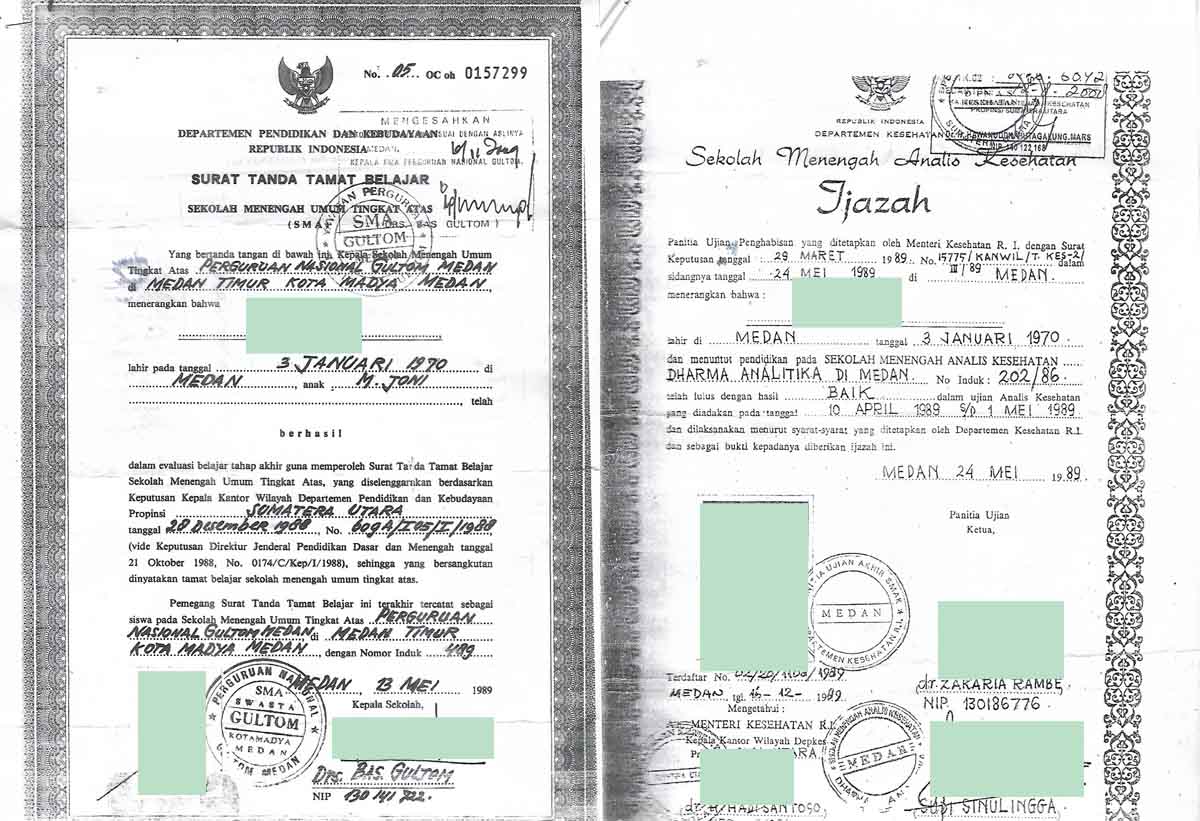 No. 05 OC oh 0157299
MENGESAHKAN
SESUAI DENGAN ASLINYA
MEDAN,
KEPALA SMA PERGURUAN NASIONAL GULTOM,
DRS. BAS GULTOM )
DEPARTEMEN PENDIDIKAN DAN KEBUDAYAAN
REPUBLIK INDONESIA
SURAT TANDA TAMAT BELAJAR
SEKOLAH MENENGAH UMUM TINGKAT ATAS
(SMA)
YAYASAN PERGURUAN
SMA
GULTOM
MEDAN
Yang bertanda tangan di bawah ini, Kepala Sekolah Menengah Umum
Tingkat Atas PERGURUAN NASIONAL GULTOM MEDAN
di MEDAN TIMUR KOTA MADYA MEDAN,
menerangkan bahwa
lahir pada tanggal 3 JANUARI 1970 di
MEDAN, anak M. JONI
, telah
berhasil
dalam evaluasi belajar tahap akhir guna memperoleh Surat Tanda Tamat Belajar
Sekolah Menengah Umum Tingkat Atas, yang diselenggarakan berdasarkan
Keputusan Kepala Kantor Wilayah Departemen Pendidikan dan Kebudayaan
Propinsi SUMATERA UTARA
tanggal 28 Desember 1988, No. 609A/I05/I/1988
(vide Keputusan Direktur Jenderal Pendidikan Dasar dan Menengah tanggal
21 Oktober 1988, No. 0174/C/Kep/I/1988), sehingga yang bersangkutan
dinyatakan tamat belajar sekolah menengah umum tingkat atas.
Pemegang Surat Tanda Tamat Belajar ini terakhir tercatat sebagai
siswa pada Sekolah Menengah Umum Tingkat Atas PERGURUAN
NASIONAL GULTOM MEDAN di MEDAN TIMUR
KOTA MADYA MEDAN, dengan Nomor Induk 489
MEDAN, 13 MEI 1989
Kepala Sekolah,
PERGURUAN NASIONAL
SMA
SWASTA
GULTOM
KOTAMADYA
MEDAN
GULTOM MEDAN
Drs. BAS. GULTOM
NIP 130 141 722.
REPUBLIK INDONESIA
DEPARTEMEN KESEHATAN
NIP. 140 122 168
Sekolah Menengah Analis Kesehatan
Ijazah
Panitia Ujian Penghabisan yang ditetapkan oleh Menteri Kesehatan R. I. dengan Surat
Keputusan tanggal : 29 MARET 1989. No. 15775/KANWIL/T. KES-2/III/89 dalam
sidangnya tanggal 24 MEI 1989 di MEDAN.
menerangkan bahwa :
lahir di MEDAN tanggal 3 JANUARI 1970
dan menuntut pendidikan pada SEKOLAH MENENGAH ANALIS KESEHATAN
DHARMA ANALITIKA DI MEDAN No Induk : 202/86.
telah lulus dengan hasil BAIK dalam ujian Analis Kesehatan
yang diadakan pada tanggal 10 APRIL 1989 S/D 1 MEI 1989
dan dilaksanakan menurut syarat-syarat yang ditetapkan oleh Departemen Kesehatan R.I.
dan sebagai bukti kepadanya diberikan ijazah ini.
MEDAN 24 MEI 1989.
Panitia Ujian
Ketua,
PANITIA UJIAN AKHIR SMAK
MEDAN
DEPARTEMEN KESEHATAN R.I.
dr. ZAKARIA RAMBE,
NIP. 130186776
Terdaftar No.
MEDAN tgl. 16 - 12 - 1989
Mengetahui :
MENTERI KESEHATAN R.I.
Kepala Kantor Wilayah Depkes
SEKOLAH MENENGAH ANALIS KESEHATAN
MEDAN
SINULINGGA